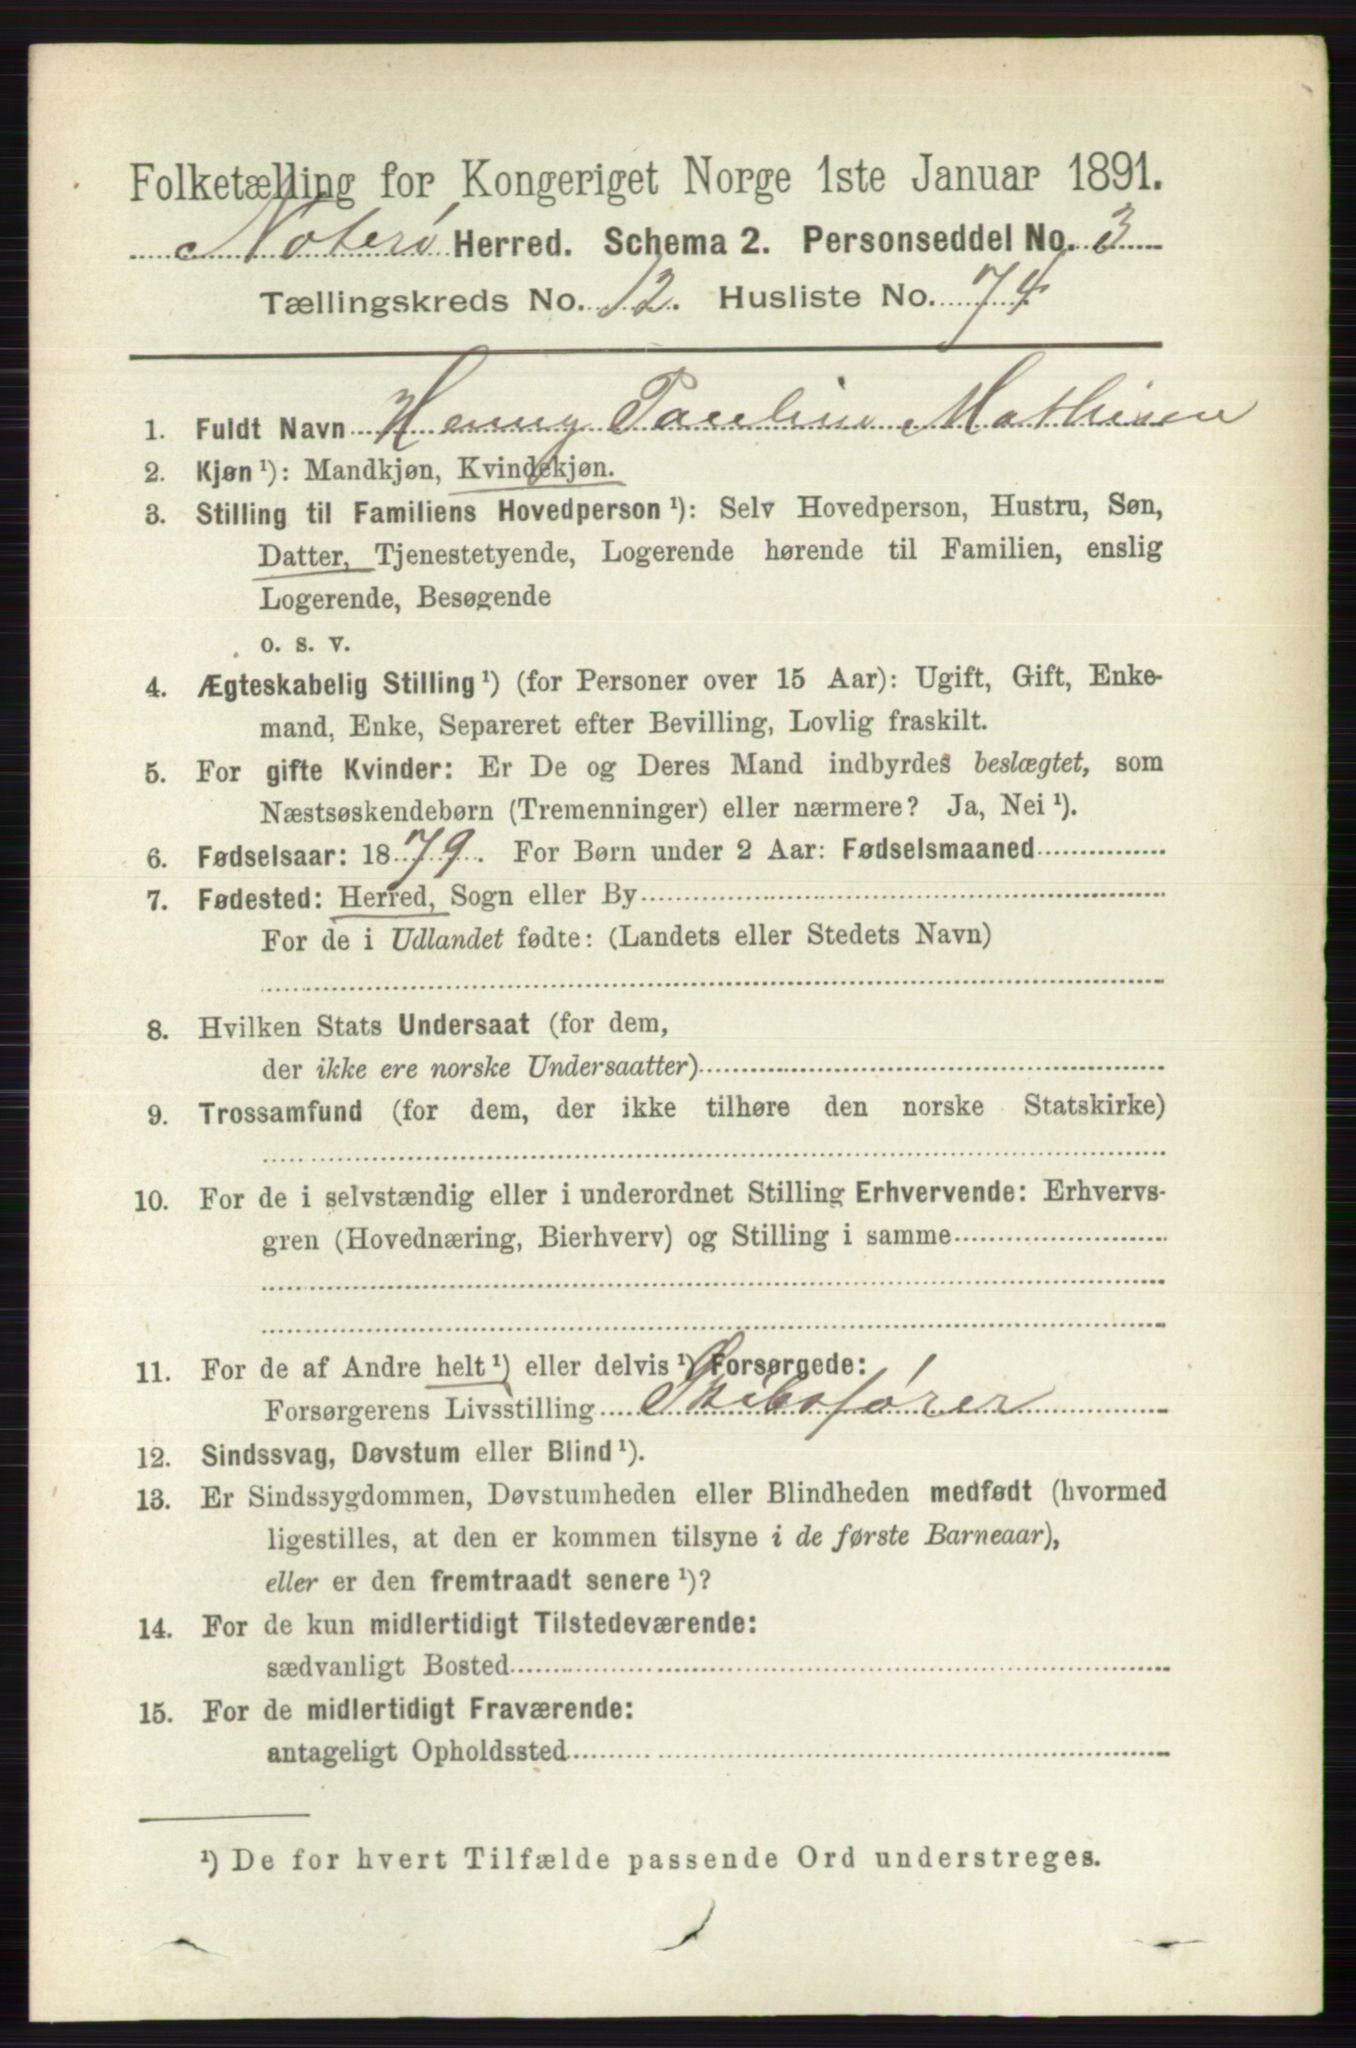 Folketælling for Kongeriget Norge 1ste Januar 1891.
Nøterø Herred. Schema 2. Personseddel No. 3
Tællingskreds No. 12. Husliste No. 74
1. Fuldt Navn Henny Pauline Mathisen
2. Kjøn ¹): Mandkjøn, Kvindekjøn.
3. Stilling til Familiens Hovedperson ¹): Selv Hovedperson, Hustru, Søn,
Datter, Tjenestetyende, Logerende hørende til Familien, enslig
Logerende, Besøgende
o. s. v.
4. Ægteskabelig Stilling ¹) (for Personer over 15 Aar): Ugift, Gift, Enke-
mand, Enke, Separeret efter Bevilling, Lovlig fraskilt.
5. For gifte Kvinder: Er De og Deres Mand indbyrdes beslægtet, som
Næstsøskendebørn (Tremenninger) eller nærmere? Ja, Nei ¹).
6. Fødselsaar: 1879. For Børn under 2 Aar: Fødselsmaaned
7. Fødested: Herred, Sogn eller By
For de i Udlandet fødte: (Landets eller Stedets Navn)
8. Hvilken Stats Undersaat (for dem,
der ikke ere norske Undersaatter)
9. Trossamfund (for dem, der ikke tilhøre den norske Statskirke)
10. For de i selvstændig eller i underordnet Stilling Erhvervende: Erhvervs-
gren (Hovednæring, Bierhverv) og Stilling i samme
11. For de af Andre helt ¹) eller delvis ¹) Forsørgede:
Forsørgerens Livsstilling Skibsfører
12. Sindssvag, Døvstum eller Blind ¹).
13. Er Sindssygdommen, Døvstumheden eller Blindheden medfødt (hvormed
ligestilles, at den er kommen tilsyne i de første Barneaar),
eller er den fremtraadt senere ¹)?
14. For de kun midlertidigt Tilstedeværende:
sædvanligt Bosted
15. For de midlertidigt Fraværende:
antageligt Opholdssted
¹) De for hvert Tilfælde passende Ord understreges.